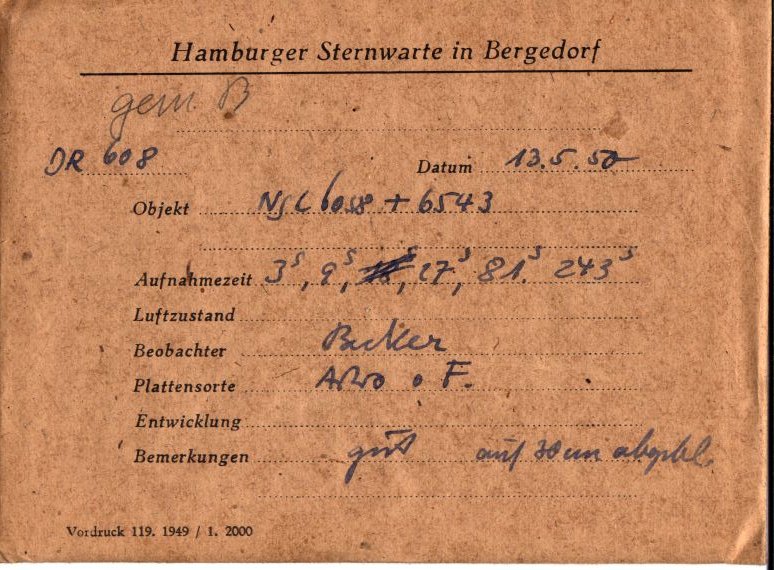 Hamburger Sternwarte in Bergedorf
gem. B
DR 608 Datum 13.5.50
Objekt NGC 6058 + 6543
Aufnahmezeit 3s, 9s, 27s, 81s 243s
Luftzustand
Beobachter Becker
Plattensorte Astro o F.
Entwicklung
Bemerkungen gut auf 30 cm abgebl.
Vordruck 119. 1949 / 1. 2000